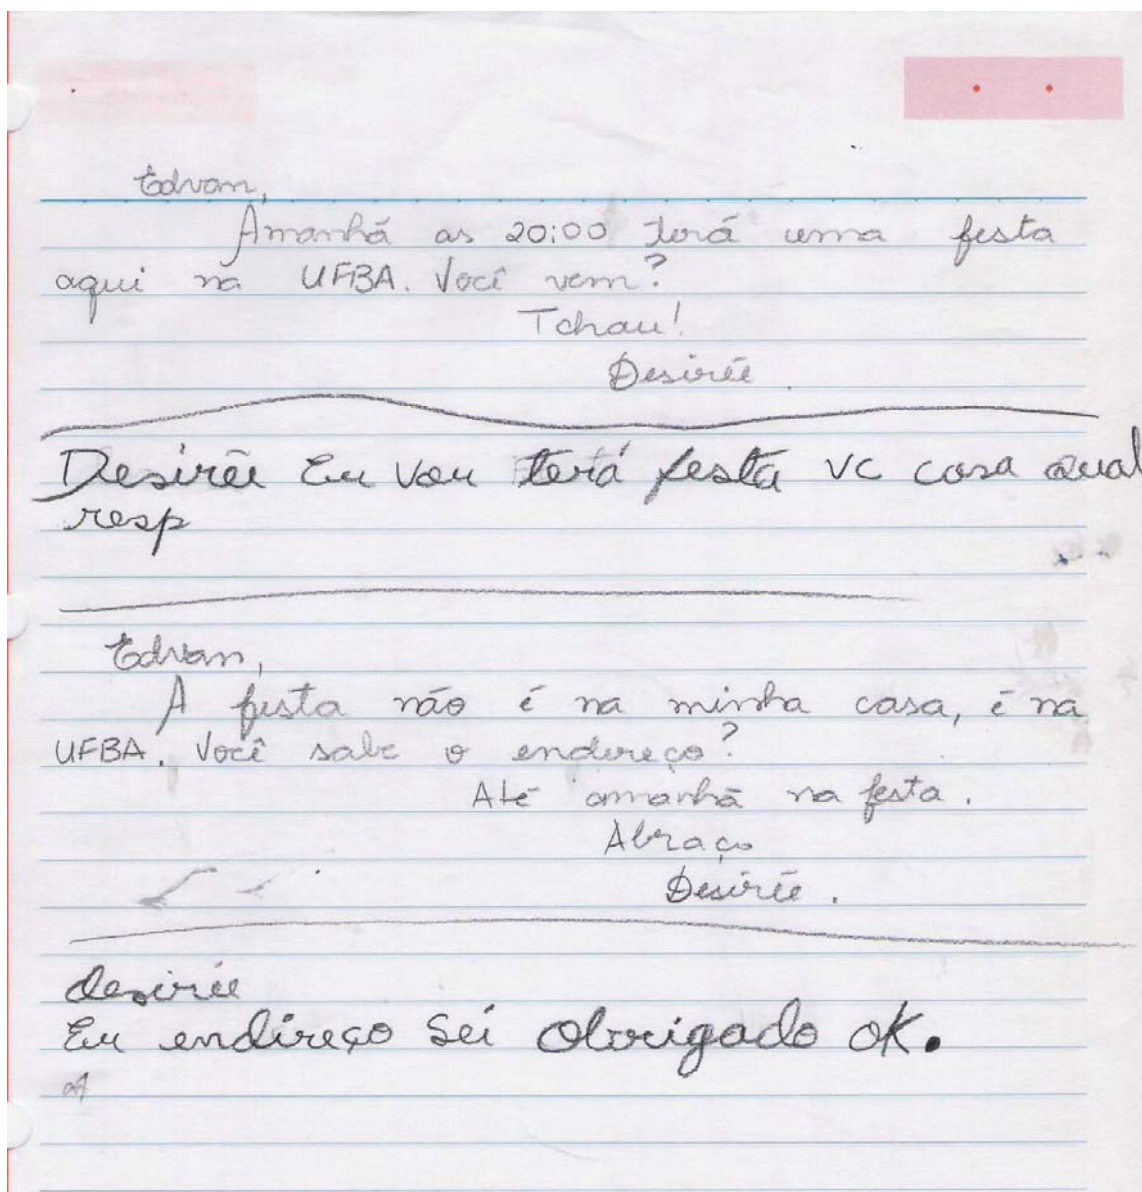 Edvan,
Amanhã as 20:00 terá uma festa
aqui na UFBA. Você vem?
Tchau!
Desirée
Desirée Eu vou terá festa vc casa qual
resp
Edvan,
A festa não é na minha casa, é na
UFBA. Você sabe o endereço?
Até amanhã na festa.
Abraço
Desirée.
desirée
Eu endireço Sei obrigado oK.